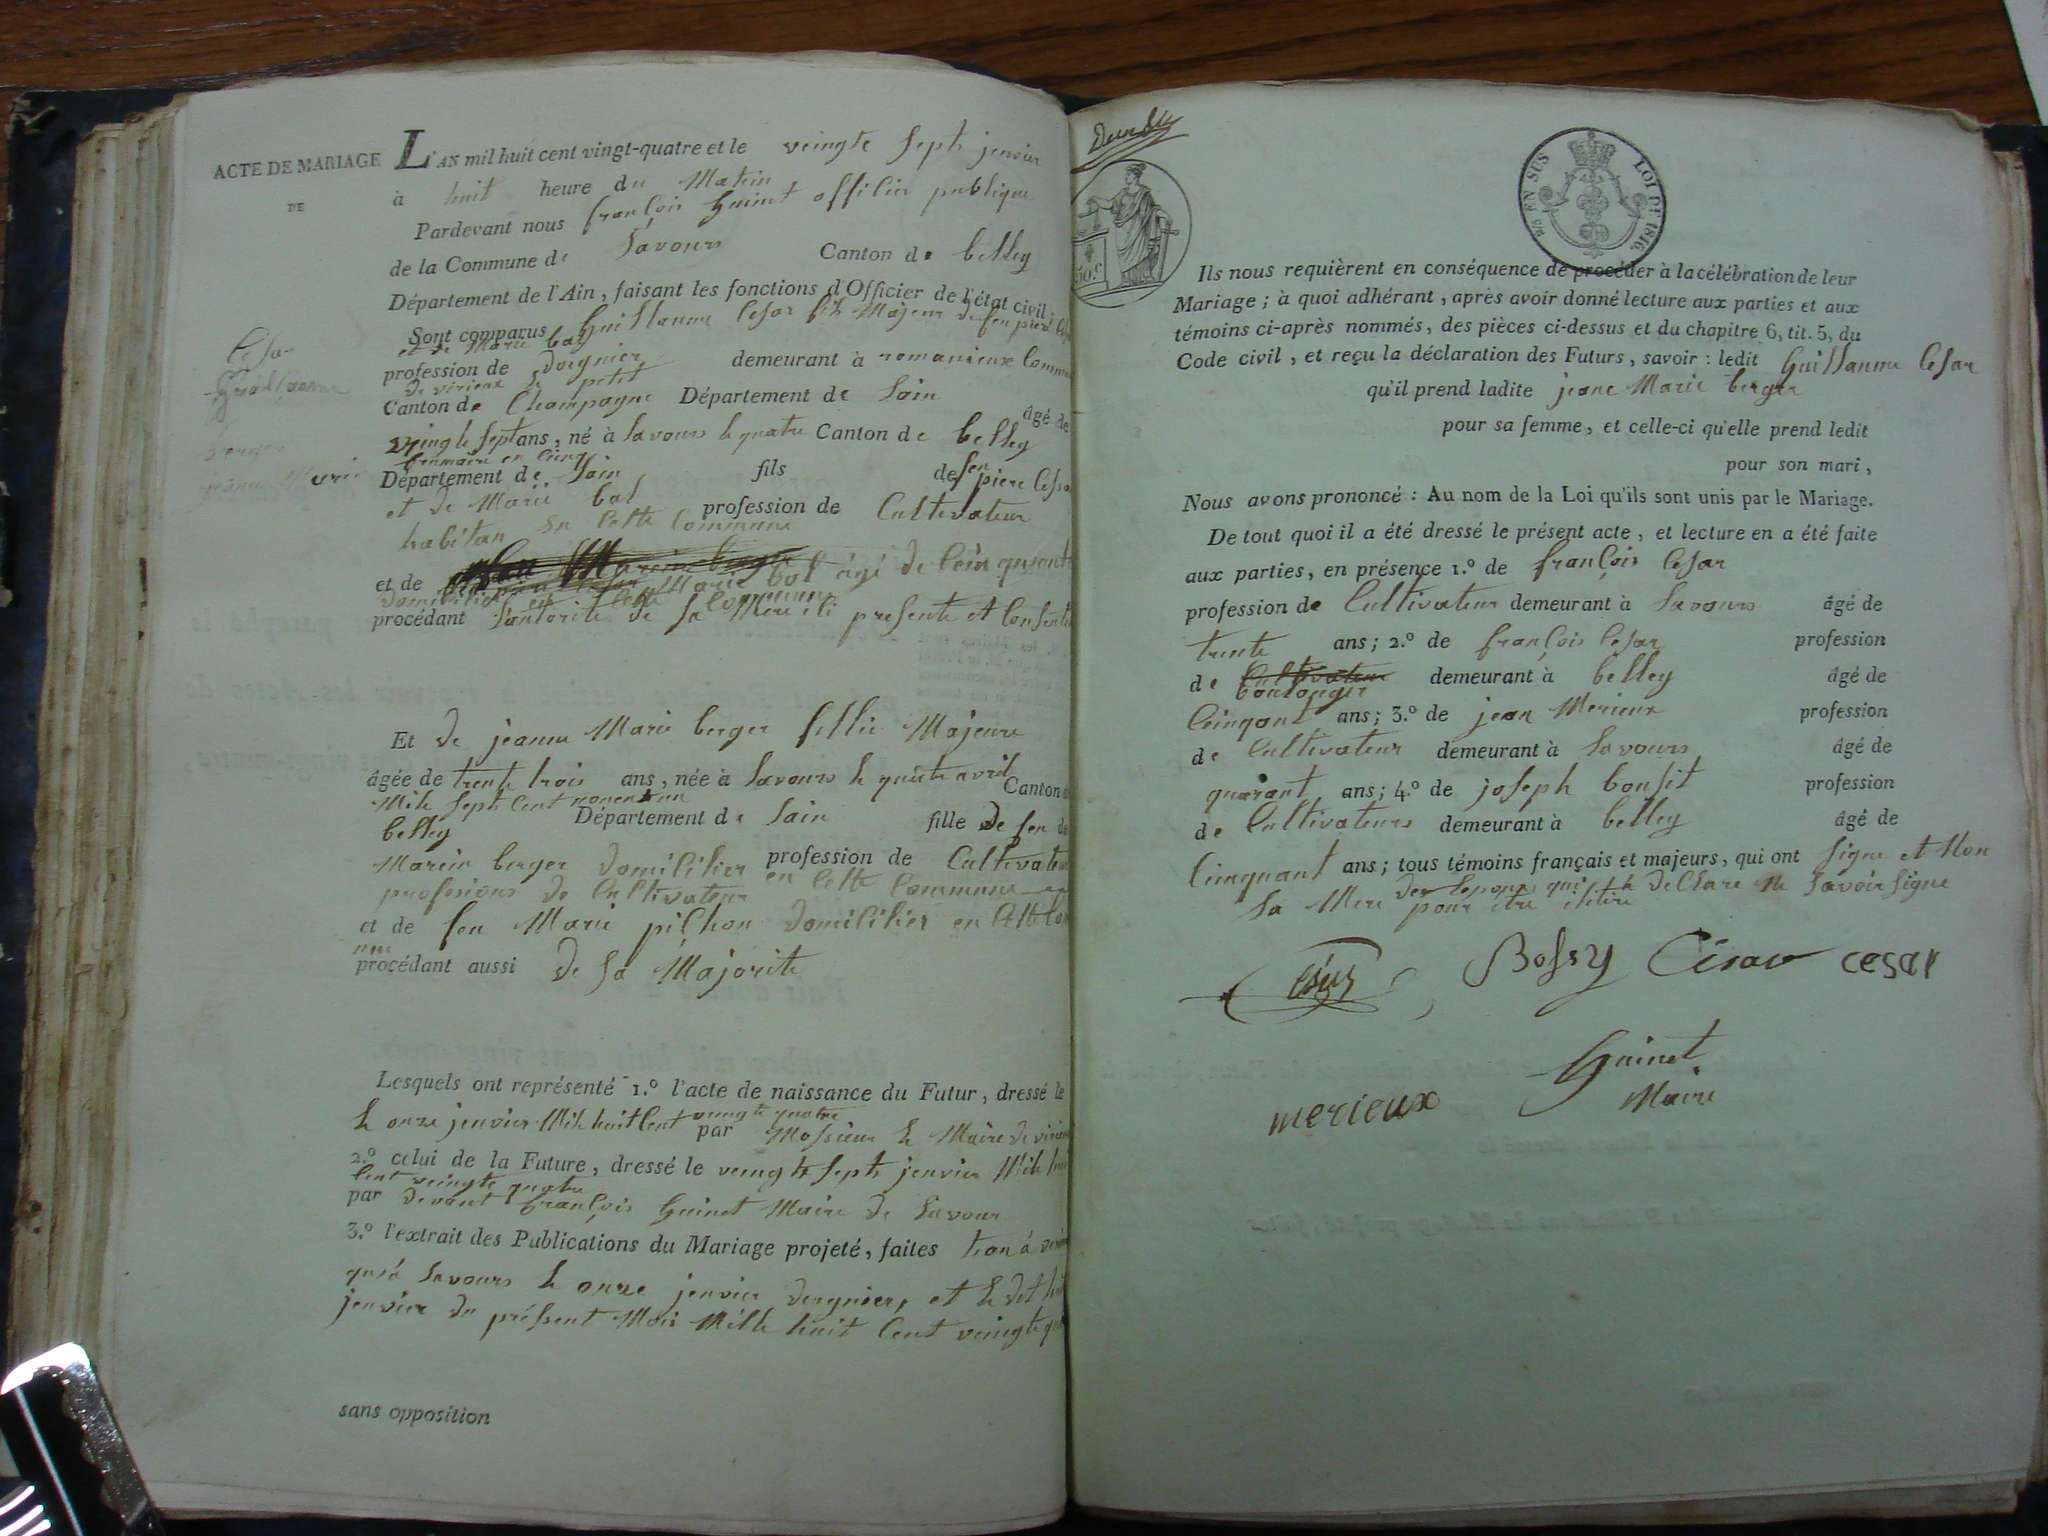 ACTE DE MARIAGE
DE
L'AN mil huit cent vingt-quatre et le veingte septs jenvier
à huit heure du Matin
Pardevant nous françois Guinet officier publique
de la Commune de Savours Canton de belley
Département de l'Ain, faisant les fonctions d'Officier de l'état civil;
Sont comparus Guillaume Cesar fils Majeur de feu piere
et de Marie bal
profession de demeurant à romanieux Commu
de virieux le petit
Canton de Champagne Département de Lain
âgé de
veingte sept ans, né à Savours le quatre Canton de belley
frimaire en cinq
Département de Lain fils de feu piere Cesa
et de Marie bal profession de Cultivateur
habitan en Cette Commune
et de Marie bal âgé de
domicilié en Cette Commune
procédant l'autorité de sa Mere ici presente et Consent
Cesar
Guillaume
berger
jeanne Marie
Et de jeanne Marie berger fillie Majeure
âgée de trente trois ans, née à Savours le avril
Canton
Mile sept Cent
belley Département de Lain fille de feu
Marin berger domicilier profession de Cultivateu
en Cette Commune
professions de Cultivateur
et de feu Marie pichon domicilier en Cette Com
procédant aussi de sa Majorite
Lesquels ont représenté 1.º l'acte de naissance du Futur, dressé le
le onze jenvier Mile huit Cent veingte quatre par Monsieur le Maire de virieu
2.º celui de la Future, dressé le veingte septs jenvier Mile hui
Cent veingte quatre
par devant françois Guinet Maire de Savour
3.º l'extrait des Publications du Mariage projeté, faites tan à virieu
qu'à Savours le onze jenvier dergnier, et le
jenvier du présent Mois Mille huit Cent veingte qu
sans opposition
EN SUS LOI DE 1816.
50.c
Ils nous requièrent en conséquence de procéder à la célébration de leur
Mariage; à quoi adhérant, après avoir donné lecture aux parties et aux
témoins ci-après nommés, des pièces ci-dessus et du chapitre 6, tit. 5, du
Code civil, et reçu la déclaration des Futurs, savoir: ledit Guillaume Cesar
qu'il prend ladite jeane Marie berger
pour sa femme, et celle-ci qu'elle prend ledit
pour son mari,
Nous avons prononcé: Au nom de la Loi qu'ils sont unis par le Mariage.
De tout quoi il a été dressé le présent acte, et lecture en a été faite
aux parties, en présence 1.º de françois Cesar
profession de Cultivateur demeurant à Savours âgé de
trente ans; 2.º de françois Cesar profession
de Cultivateur demeurant à belley âgé de
boulonger
Cinqant ans; 3.º de jean Merieux profession
de Cultivateur demeurant à Savours âgé de
quarant ans; 4.º de joseph profession
de Cultivateurs demeurant à belley âgé de
Cinquant ans; tous témoins français et majeurs, qui ont signe et Non
sa Mere qui a declare ne savoir signe
pour etre
Bossy César cesar
Guinet
Maire
merieux